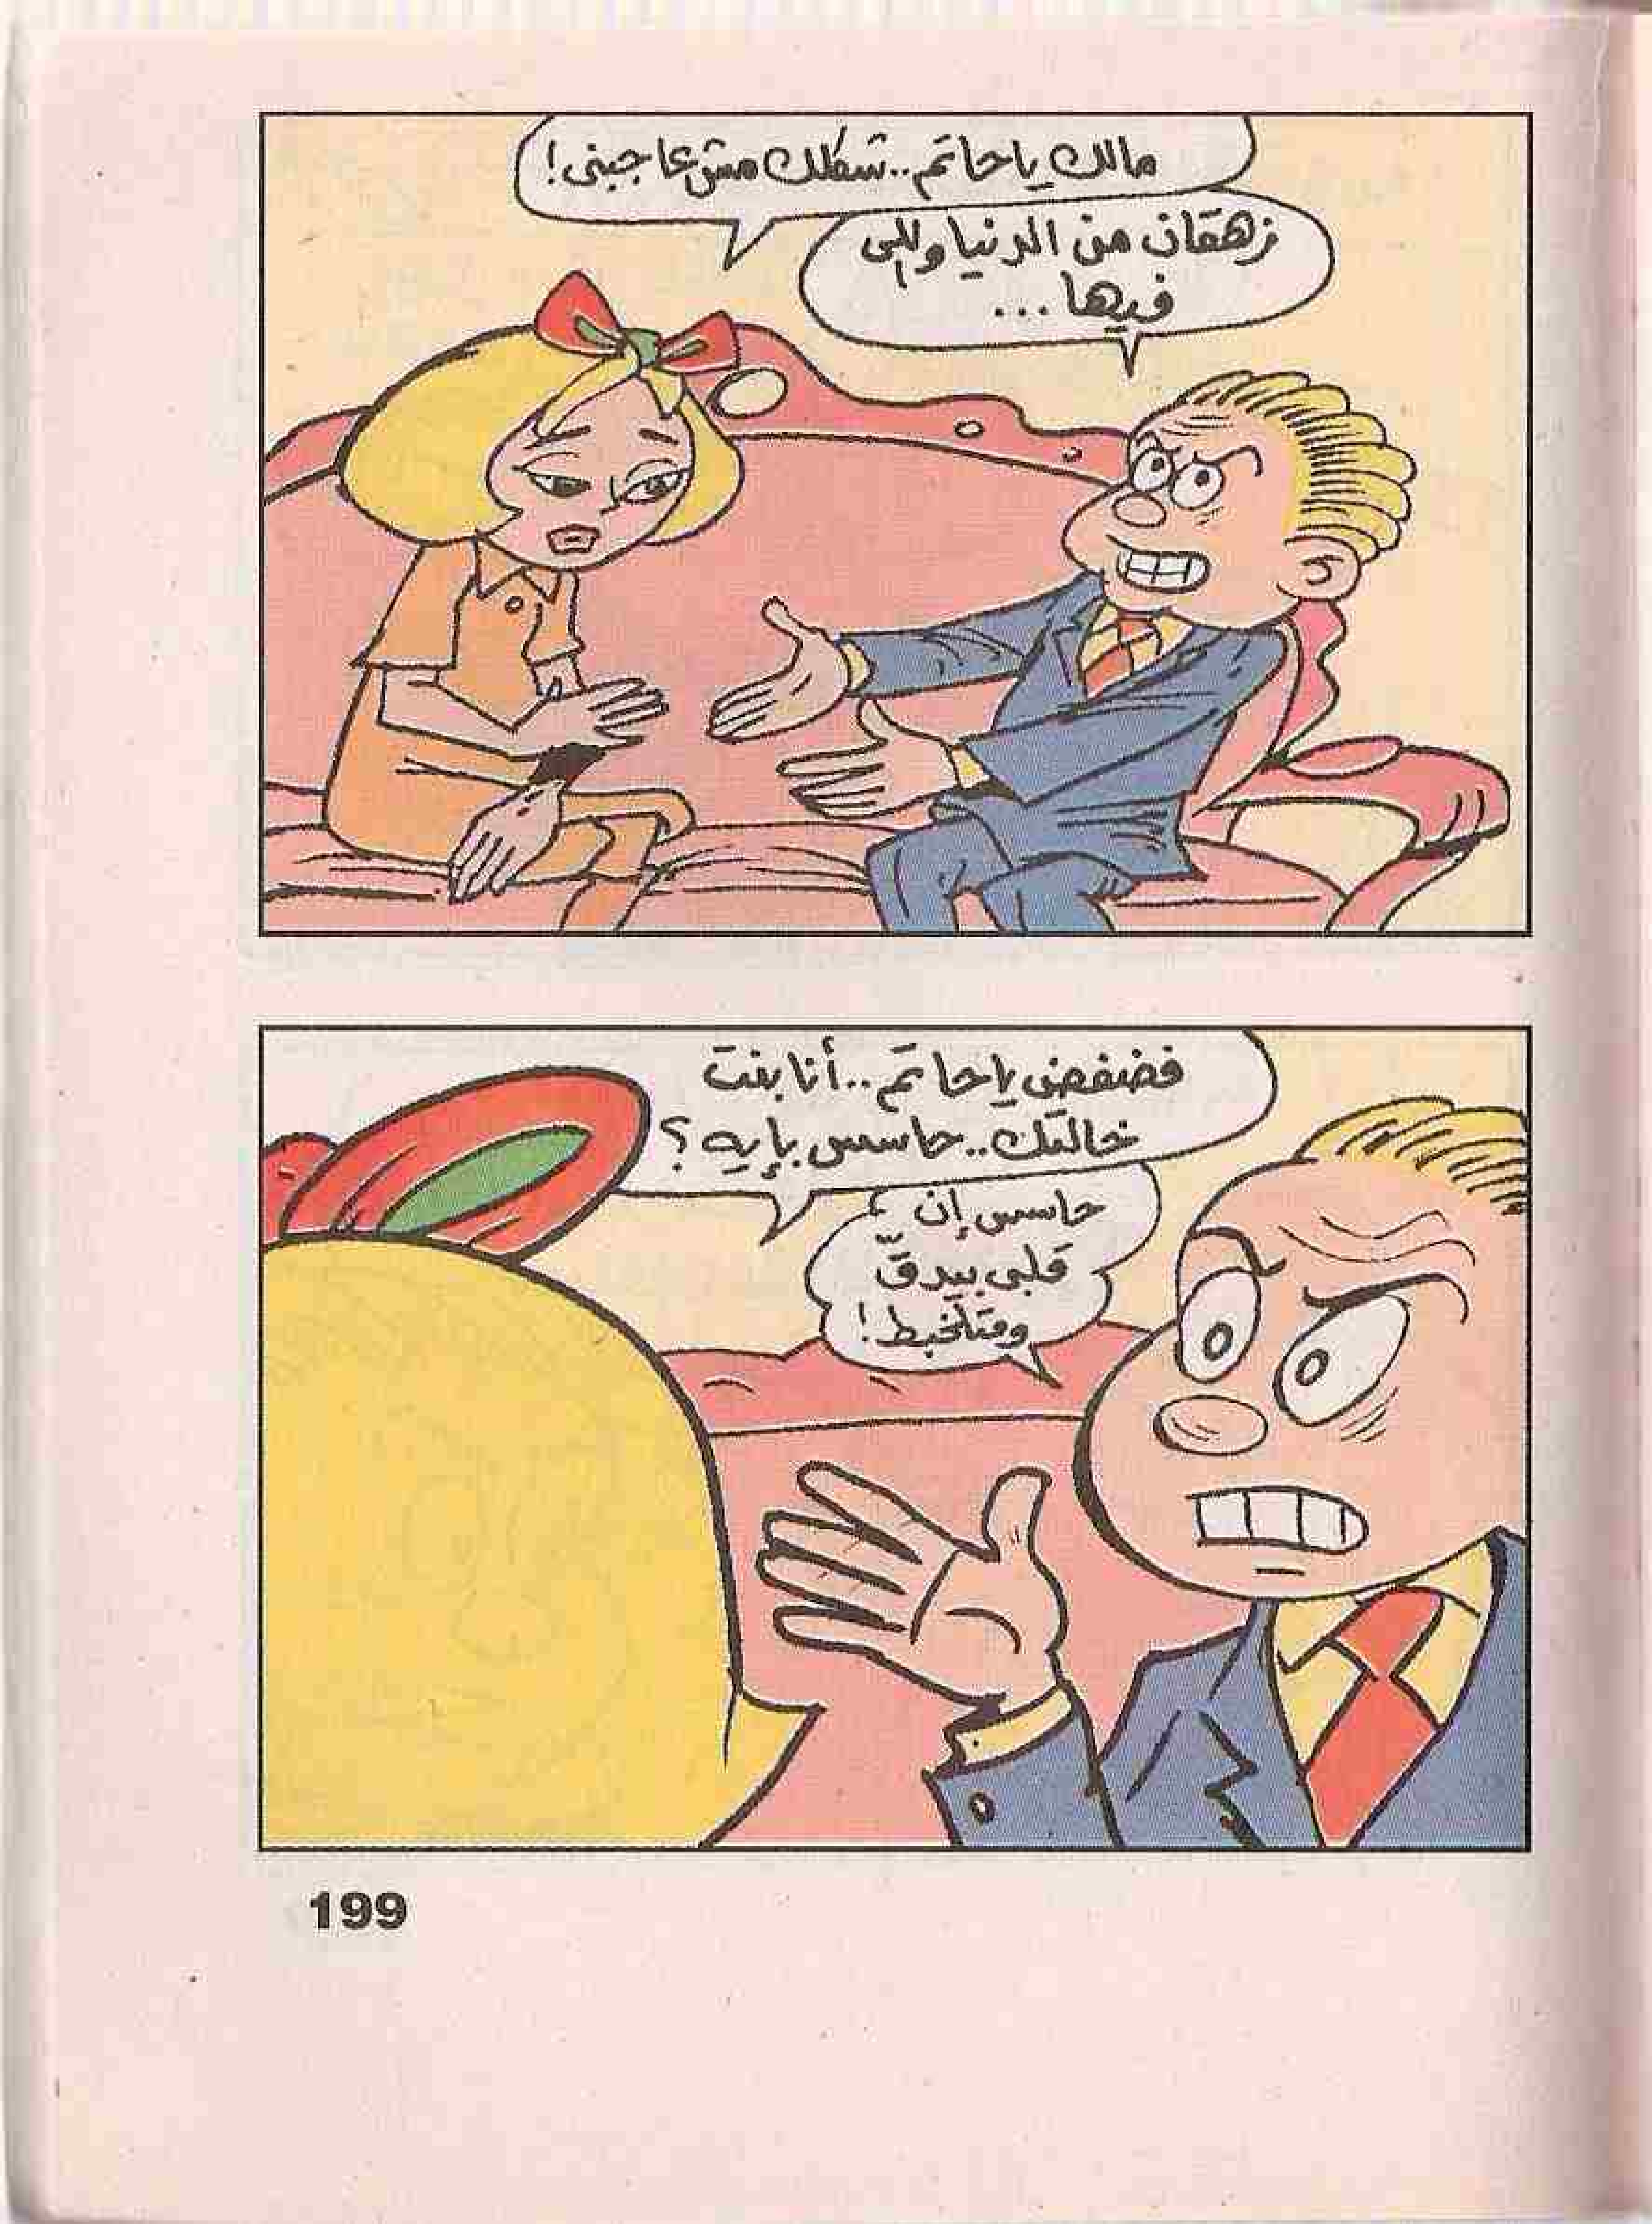 مالك يا حاتم.. شكلك مش عاجبنى!
زهقان من الدنيا واللى
فيها...
فضفض يا حاتم.. أنا بنت
خالتك.. حاسس بإيه؟
حاسس إن
قلبى بيدقّ
ومتلخبط!
199